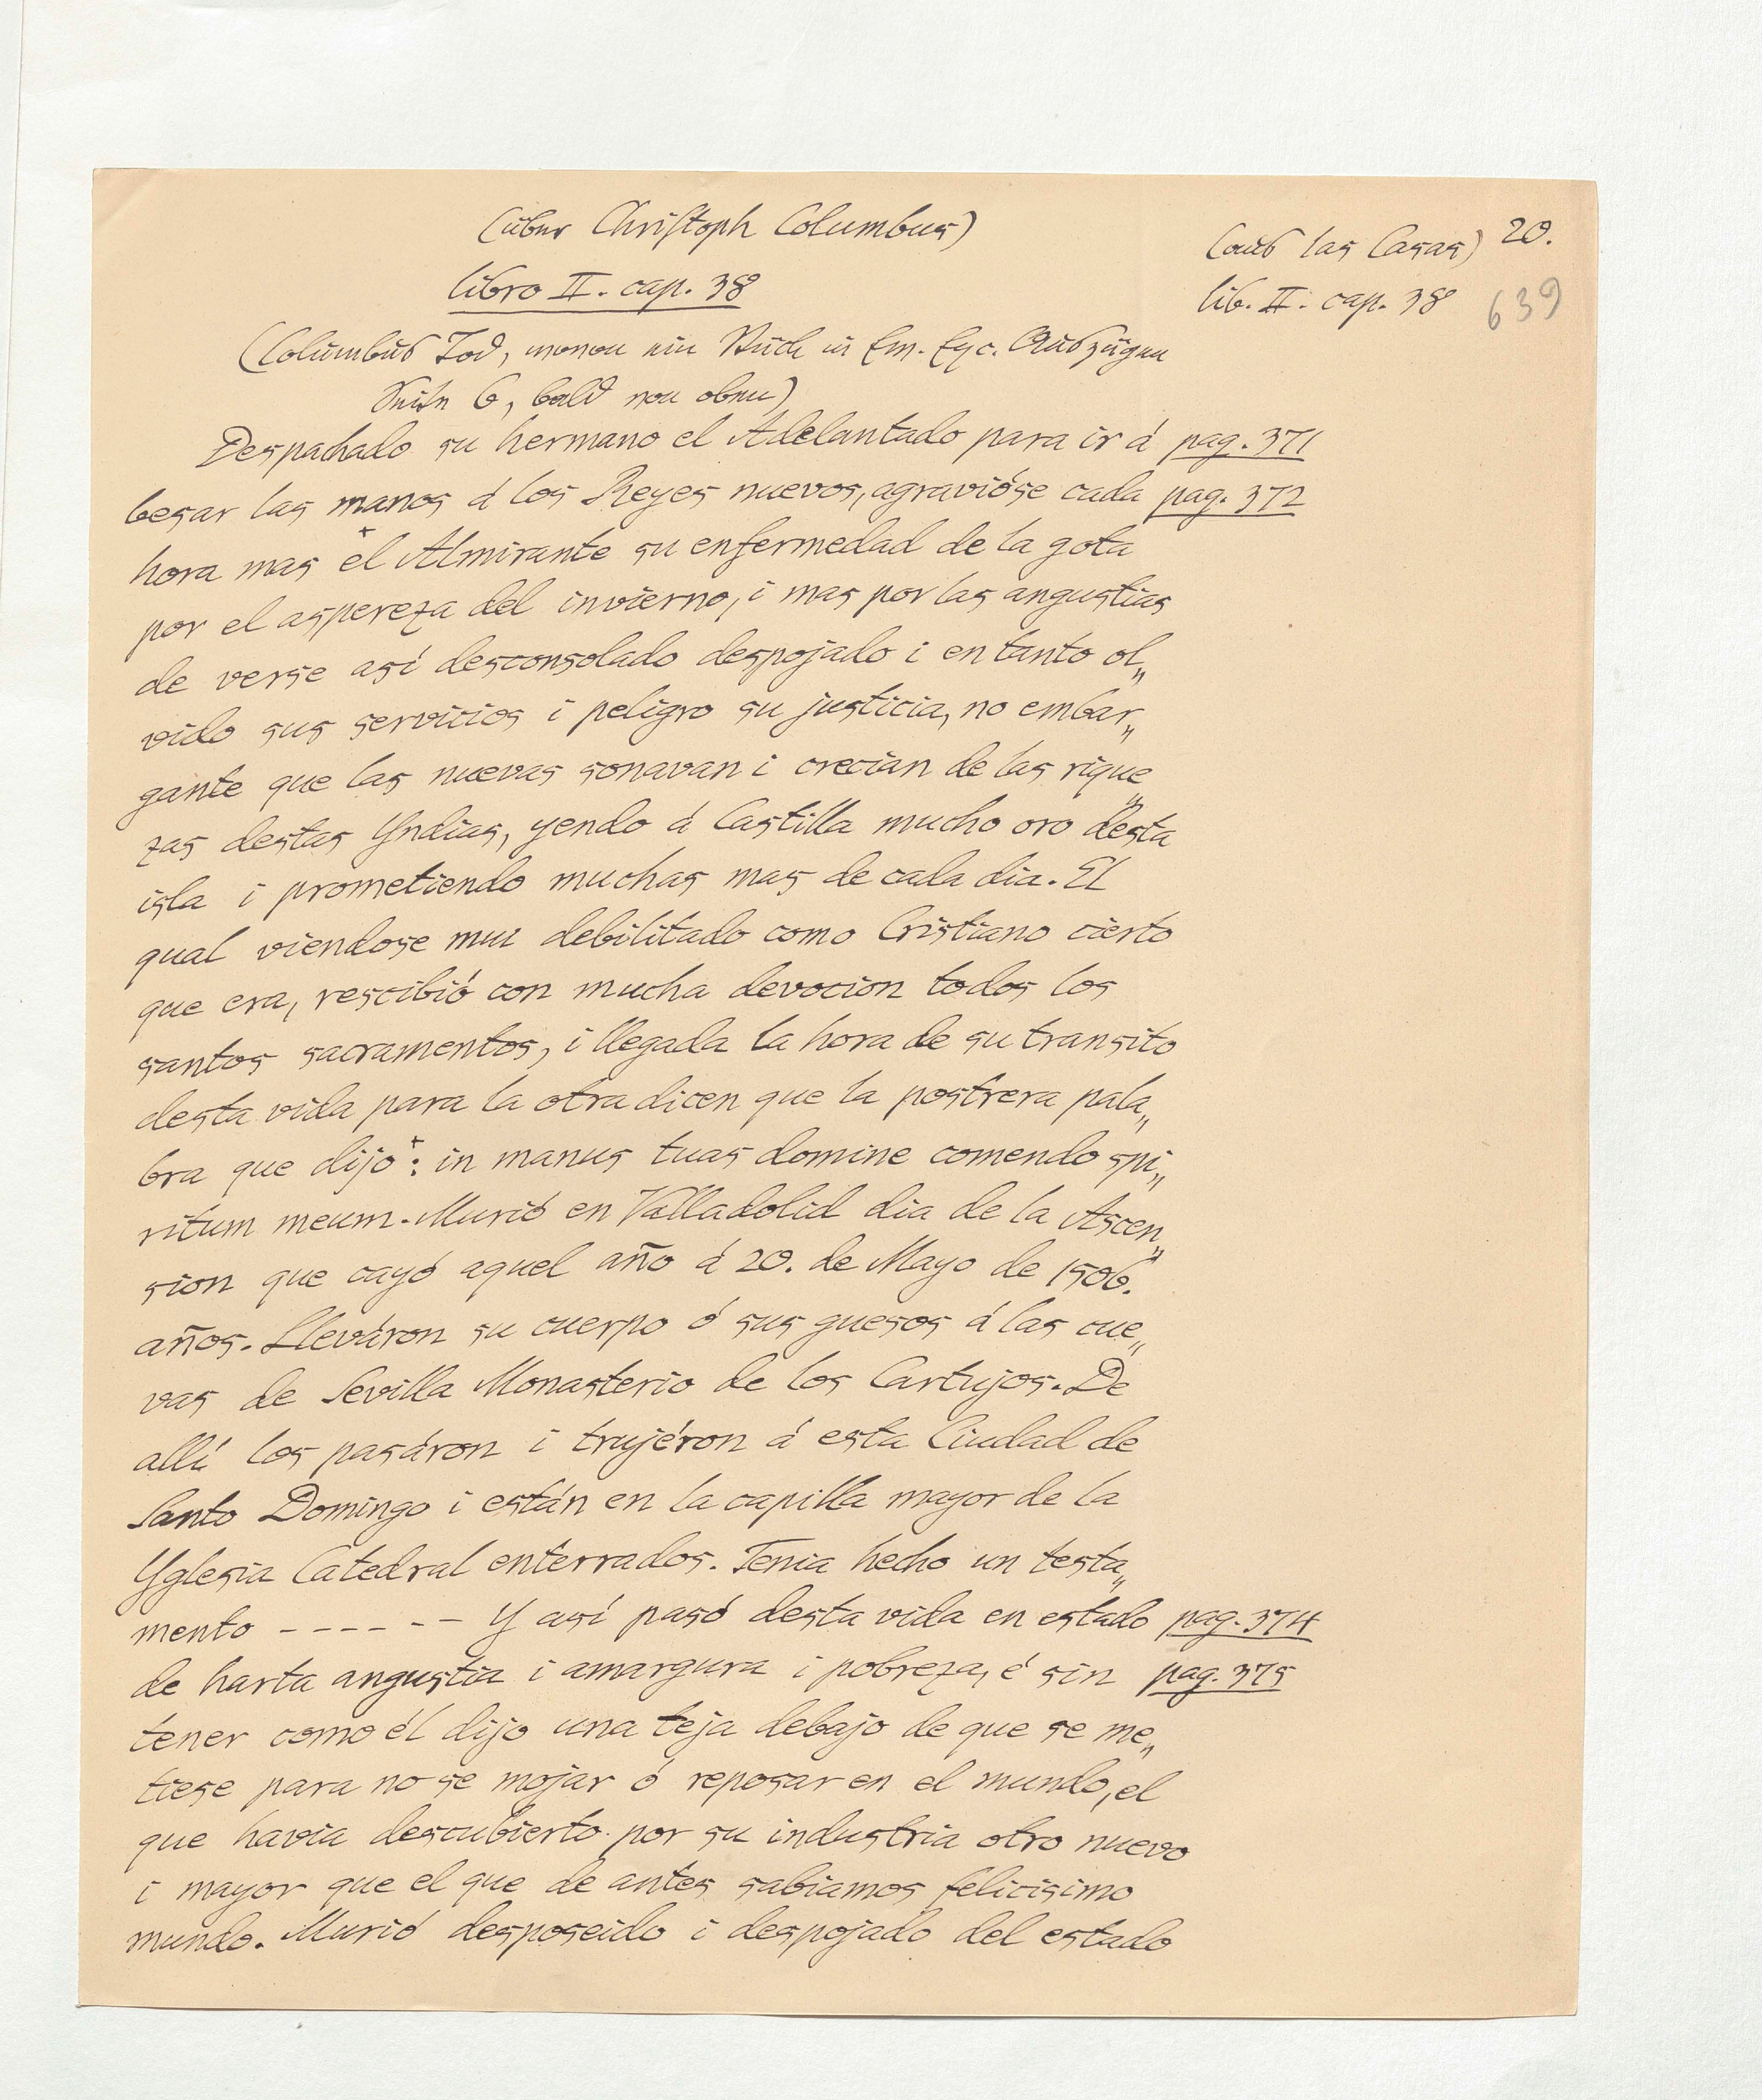 (über Christoph Columbus)
(aus las Casas) 20.
libro II. cap. 38
lib. II. cap. 38 639
(Columbus Tod, wovon ein Stück in Em. Exc. Auszügen
Seite 6, bald von oben)
Despachado su hermano el Adelantado para ir á pag. 371
besar las manos á los Reyes nuevos, agravióse cada pag. 372
hora mas el Almirante su enfermedad de la gota
por el aspereza del invierno, i mas por las angustias
de verse así desconsolado despojado i en tanto ol„
vido sus servicios i peligro su justicia, no embar„
gante que las nuevas sonavan i crecian de las rique„
zas destas Yndias, yendo á Castilla mucho oro desta
isla i prometiendo muchas mas de cada dia. El
qual viendose mui debilitado como Cristiano cierto
que era, rescibió con mucha devocion todos los
santos sacramentos, i llegada la hora de su transito
desta vida para la otra dicen que la postrera pala„
bra que dijo+: in manus tuas domine comendo spi„
ritum meum. Murió en Valladolid dia de la Ascen„
sion que cayó aquel año á 20. de Mayo de 1506.
años. Lleváron su cuerpo ó sus guesos á las cue„
vas de Sevilla Monasterio de los Cartujos. De
allí los pasáron i trujéron á esta Ciudad de
Santo Domingo i están en la capilla mayor de la
Yglesia Catedral enterrados. Tenia hecho un testa„
mento - - - - - - Y así pasó desta vida en estado pag. 374
de harta angustia i amargura i pobreza, é sin pag. 375
tener como él dijo una teja debajo de que se me„
tiese para no se mojar ó reposar en el mundo, el
que havia descubierto por su industria otro nuevo
i mayor que el que de antes sabiamos felicisimo
mundo. Murió desposeido i despojado del estado